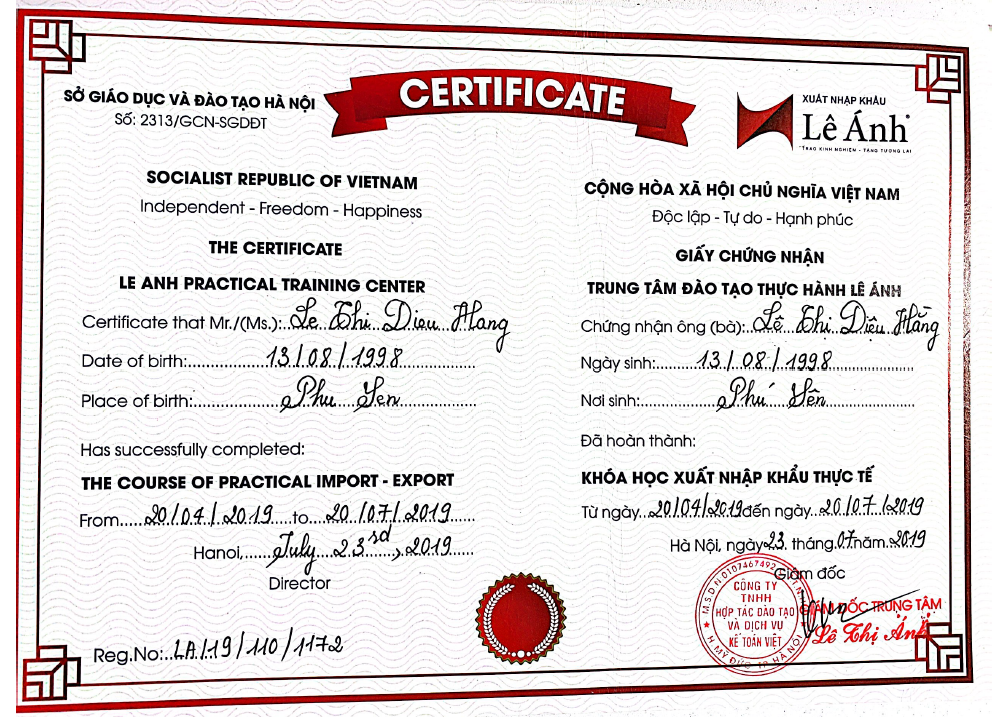 SỞ GIÁO DỤC VÀ ĐÀO TẠO HÀ NỘI
Số: 2313/GCN-SGDĐT
CERTIFICATE
XUẤT NHẬP KHẨU
Lê Ánh®
"TRAO KINH NGHIỆM - TẶNG TƯƠNG LAI
SOCIALIST REPUBLIC OF VIETNAM
Independent - Freedom - Happiness
THE CERTIFICATE
LE ANH PRACTICAL TRAINING CENTER
Certificate that Mr./(Ms.):..Le Thi Dieu Hang
Date of birth:..............13/08/1998..............
Place of birth:..............Phu Yen..............
Has successfully completed:
THE COURSE OF PRACTICAL IMPORT - EXPORT
From.....20/04/2019....to....20/07/2019.....
Hanoi,......July...23rd..,2019....
Director
Reg.No:..LA/19/110/1172
CỘNG HÒA XÃ HỘI CHỦ NGHĨA VIỆT NAM
Độc lập - Tự do - Hạnh phúc
GIẤY CHỨNG NHẬN
TRUNG TÂM ĐÀO TẠO THỰC HÀNH LÊ ÁNH
Chứng nhận ông (bà):..Lê Thị Diệu Hằng
Ngày sinh:.......13/08/1998..............
Nơi sinh:..............Phú Yên..............
Đã hoàn thành:
KHÓA HỌC XUẤT NHẬP KHẨU THỰC TẾ
Từ ngày...20/04/2019đến ngày..20/07/2019
Hà Nội, ngày23. tháng.07.năm..2019
Giám đốc
M.S.D.N:0107467492
CÔNG TY
TNHH
HỢP TÁC ĐÀO TẠO
VÀ DỊCH VỤ
KẾ TOÁN VIỆT
H.MỸ ĐỨC-TP HÀ NỘI
GIÁM ĐỐC TRUNG TÂM
Lê Thị Ánh